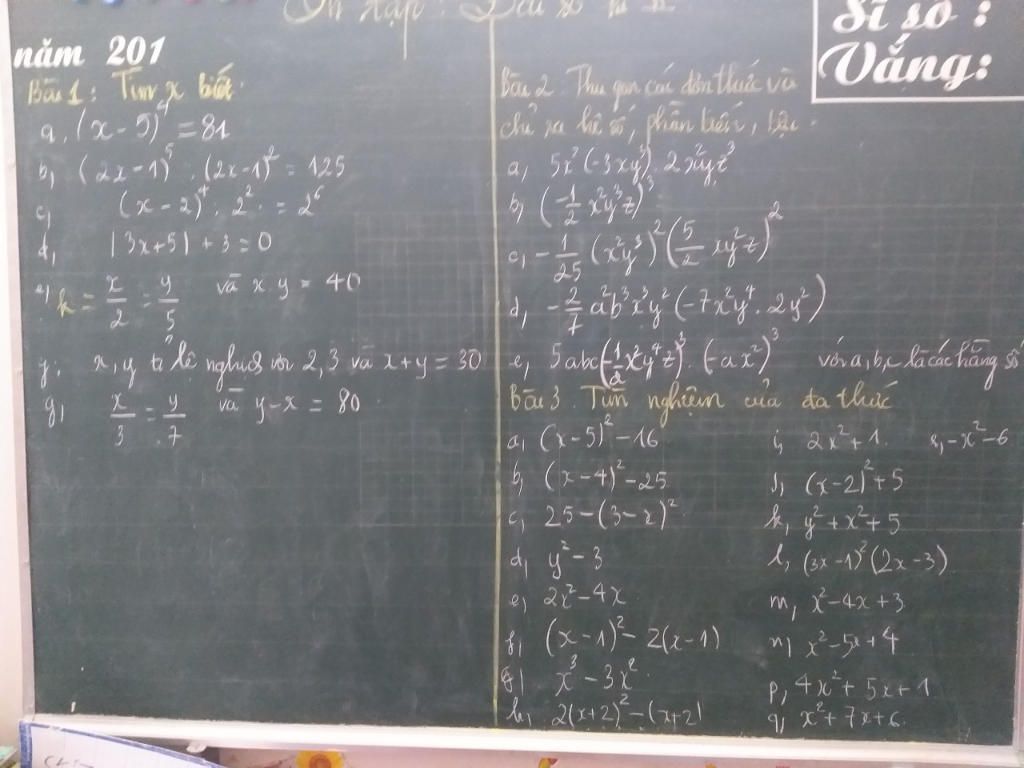 Ôn tập: Đại số
Sĩ số :
Vắng:
năm 201
Bài 1: Tìm x biết
a, (x-5)⁴ = 81
b, (2x-1)⁵ : (2x-1)² = 125
c, (x-2)⁴ . 2² = 2⁶
d, |3x+5| + 3 = 0
e, k = x/2 = y/5 và x.y = 40
f, x, y tỉ lệ nghịch với 2, 3 và x+y = 30
g, x/3 = y/7 và y-x = 80
Bài 2. Thu gọn các đơn thức và
chỉ ra hệ số, phần biến, bậc.
a, 5x²(-3xy³).2x²yz³
b, (-1/2 x²y³z)³
c, -1/25 (x²y³)² (5/2 xy²z)²
d, -2/7 a²b³x³y² (-7x²y⁴.2y²)
e, 5abc(-1/a x³y⁴z)³ . (-ax²)³ với a, b, c là các hằng số
Bài 3. Tìm nghiệm của đa thức
a, (x-5)² - 16
b, (x-4)² - 25
c, 25 - (3-x)²
d, y² - 3
e, 2x² - 4x
f, (x-1)² - 2(x-1)
g, x³ - 3x²
h, 2(x+2)² - (x+2)
i, 2x² + 1 s, -x² - 6
j, (x-2)² + 5
k, y² + x² + 5
l, (3x-1)² (2x-3)
m, x² - 4x + 3
n, x² - 5x + 4
p, 4x² + 5x + 1
q, x² + 7x + 6